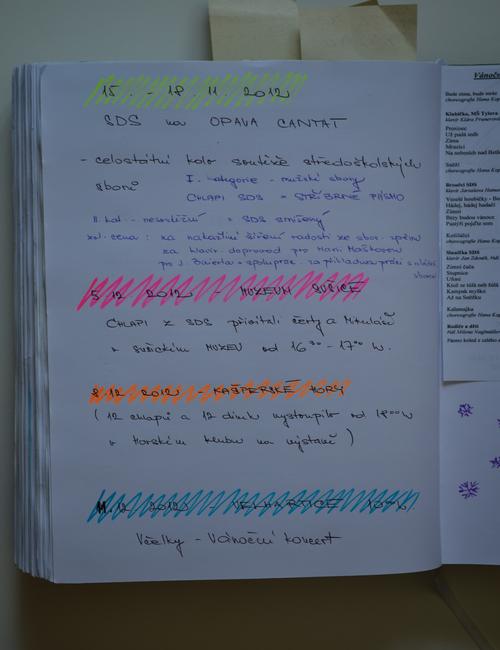 15. - 18. 11. 2012
SDS na OPAVA CANTAT
- celostátní kolo soutěže středoškolských
sborů
I. kategorie - mužské sbory
CHLAPI SDS = STŘÍBRNÉ PÁSMO
II. kat. - nesoutěžní = SDS smíšený
zvl. cena : za nakažlivé šíření radosti ze sbor. zpěvu
za klavír. doprovod pro Marii
pro J. Baierla + spoluprac. za příkladnou práci s
sborem
5.12. 2012 - MUZEUM SUŠICE
CHLAPI z SDS přivítali čerty a Mikuláše
v sušickém MUZEU od 16 30 - 17 00 h.
8.12. 2012 - KAŠPERSKÉ HORY
( 12 chlapů a 12 dívek vystoupilo od 18 00 h
v Horském klubu na výstavě )
12. 2012 VELHARTICE
Včelky - Vánoční koncert
Vánoč
Bude zima, bude mráz
choreografie Hana Kop
Klubíčka, MŠ Tylova
klavír Klára
Prosinec
Už padá sníh
Zima
Mrazíci
Na nebesích nad Betlé
Sněží
choreografie Hana Kop
Broučci SDS
klavír Jaroslava Hamar
Veselé
Hádej, hádej hadači
Zimní
Bílý budou vánoce
Pastýři pojďte sem
Koťátátá
choreografie Hana Kop
Sluníčka SDS
klavír Jan Zdeněk, Hali
Zimní čača
Stopnice
Usínej
Kdo to zná
Kampak myška
Až na Sněžku
Kalamajka
choreografie Hana Kop
Rodiče a děti
řídí Milena Naglmüllero